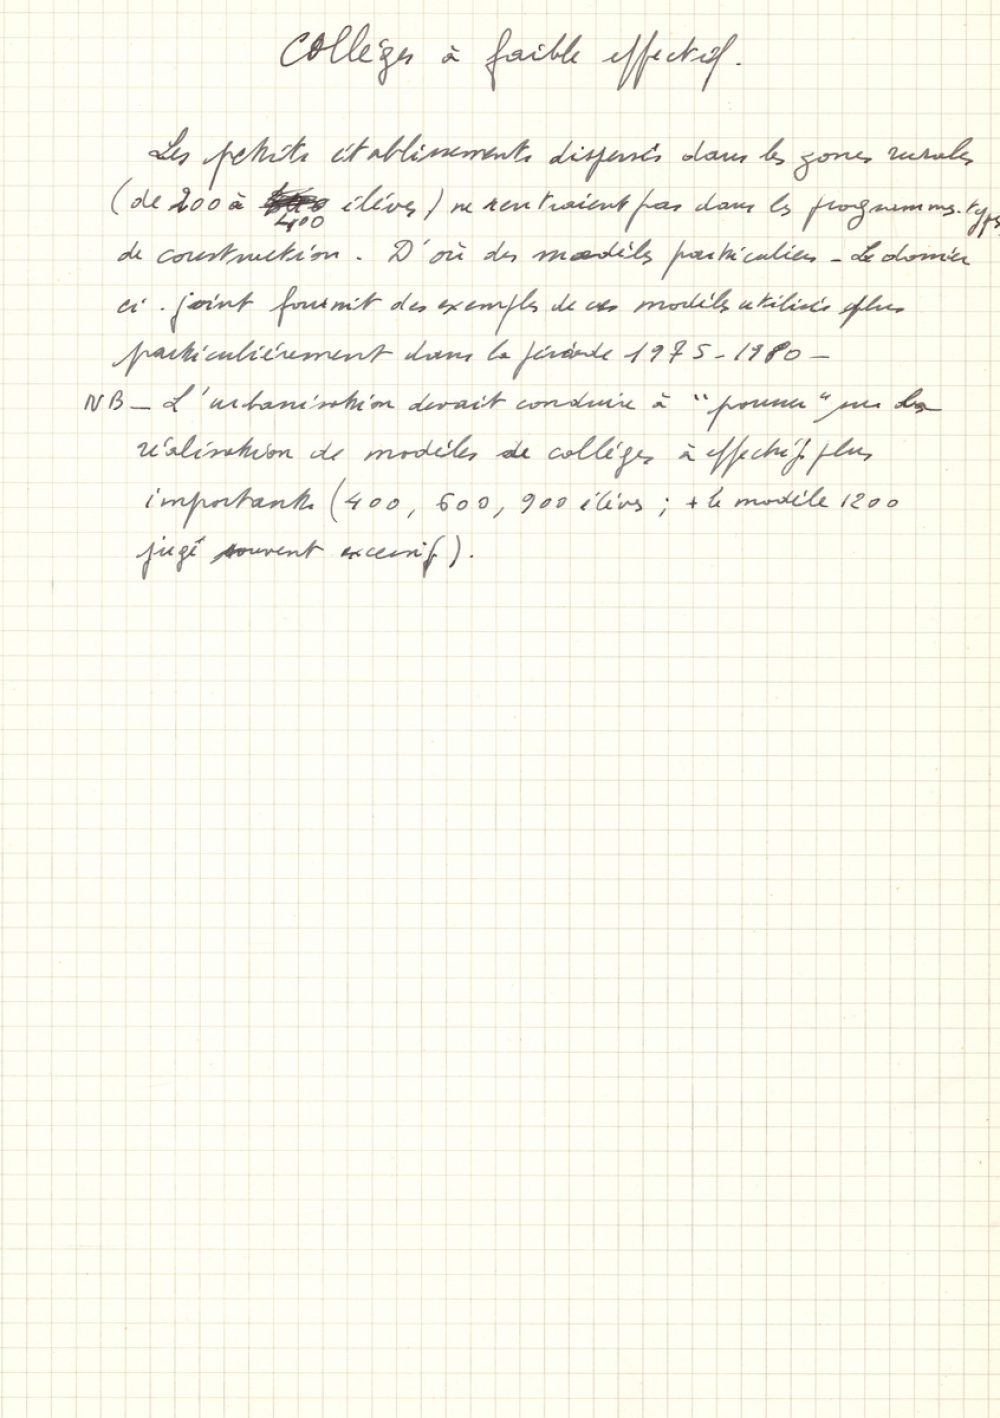 Collèges à faible effectif.
Les petits établissements dispersés dans les zones rurales
(de 200 à 400 élèves) ne rentraient pas dans les programmes-types
de construction. D'où des modèles particuliers - Le dossier
ci-joint fournit des exemples de ces modèles utilisés plus
particulièrement dans la période 1975-1980 -
NB - L'urbanisation devait conduire à "pousser" sur la
réalisation de modèles de collèges à effectifs plus
importants (400, 600, 900 élèves ; + le modèle 1200
jugé souvent excessif).